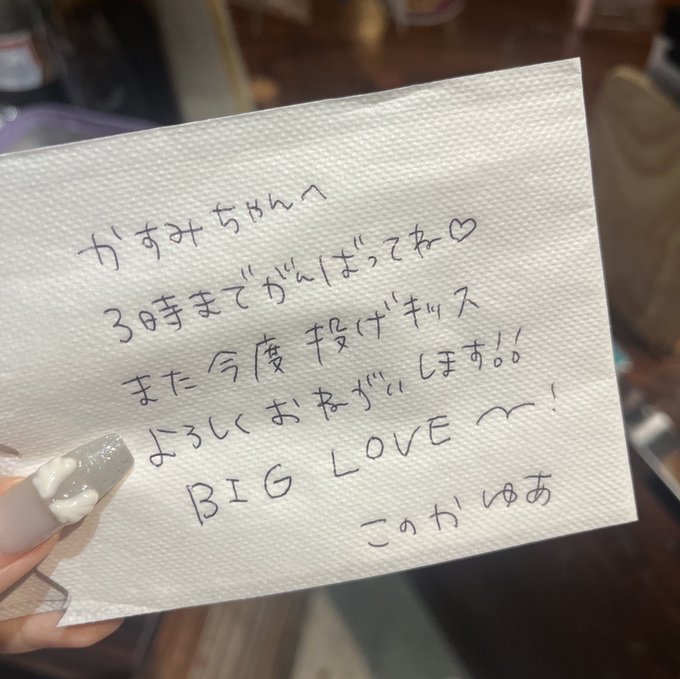 かすみちゃんへ
3時までがんばってね♡
また今度 投げキッス
よろしくおねがいします!!
BIG LOVE 〜!
このか ゆあ